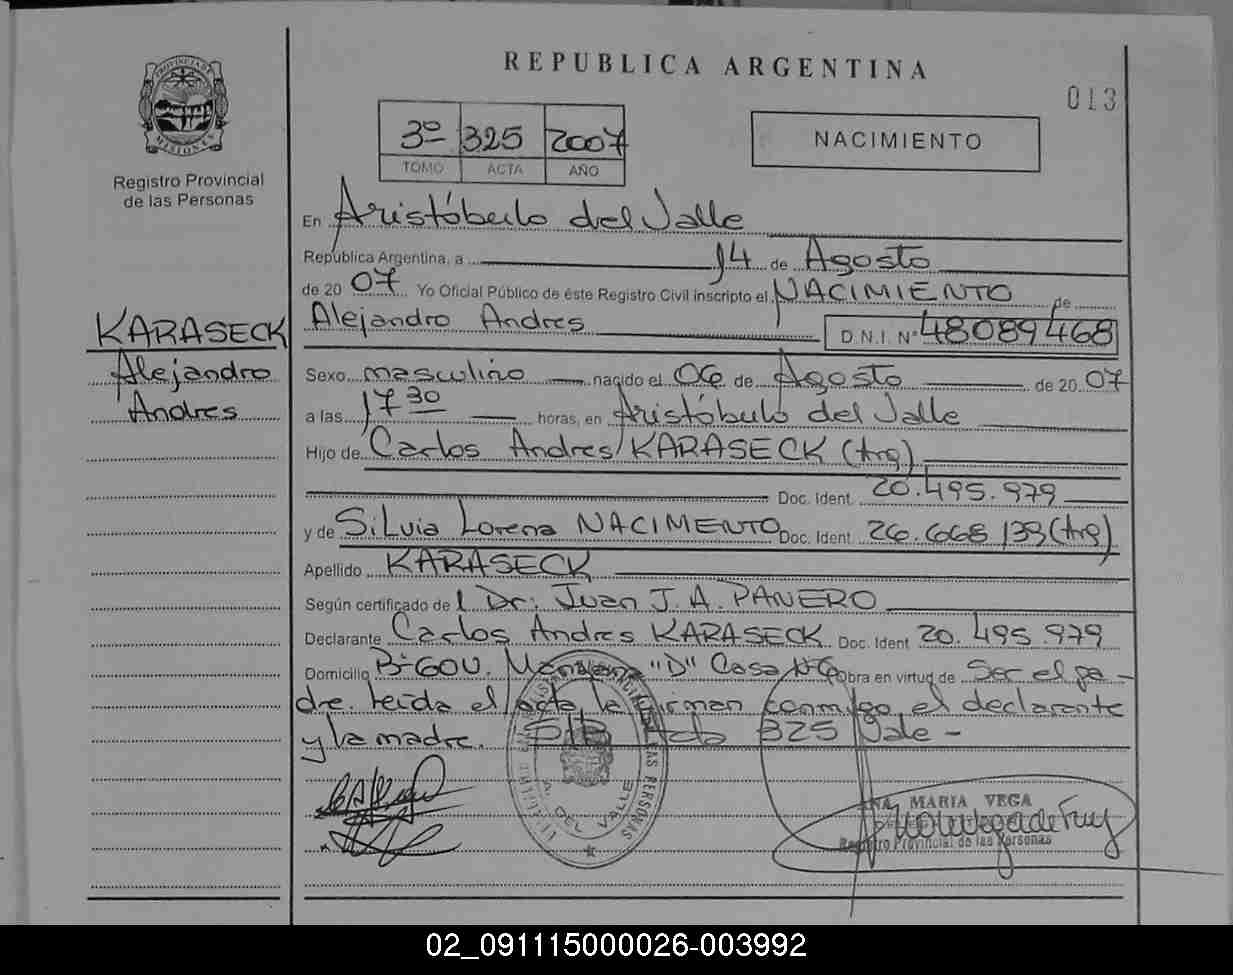 REPUBLICA ARGENTINA
013
PROVINCIA DE MISIONES
Registro Provincial
de las Personas
3º 325 2007
TOMO ACTA AÑO
NACIMIENTO
En Aristóbulo del Valle
República Argentina, a 14 de Agosto
de 20 07 Yo Oficial Público de éste Registro Civil inscripto el NACIMIENTO de
Alejandro Andres D.N.I. Nº 48089468
KARASECK
Alejandro
Andres
Sexo masculino nacido el 06 de Agosto de 20 07
a las 17 30 horas, en Aristóbulo del Valle
Hijo de Carlos Andres KARASECK (Arg)
Doc. Ident. 20.495.979
y de Silvia Lorena NACIMENTO Doc. Ident. 26.668.139 (Arg)
Apellido KARASECK
Según certificado de l Dr: Juan J. A. PANERO
Declarante Carlos Andres KARASECK Doc. Ident 20.495.979
Domicilio Bº GOU. "D" Casa Nº 6 Obra en virtud de Ser el pa-
dre. Leida el acta la firman conmigo el declarante
y la madre. Acta 325 Vale -
A. DEL VALLE
MARIA VEGA
Registro Provincial de las Personas
02_091115000026-003992